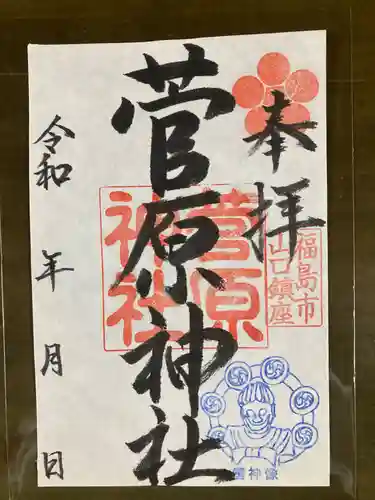 奉拝
福島市
山口鎮座
菅原神社
菅原
神社
令和 年 月 日